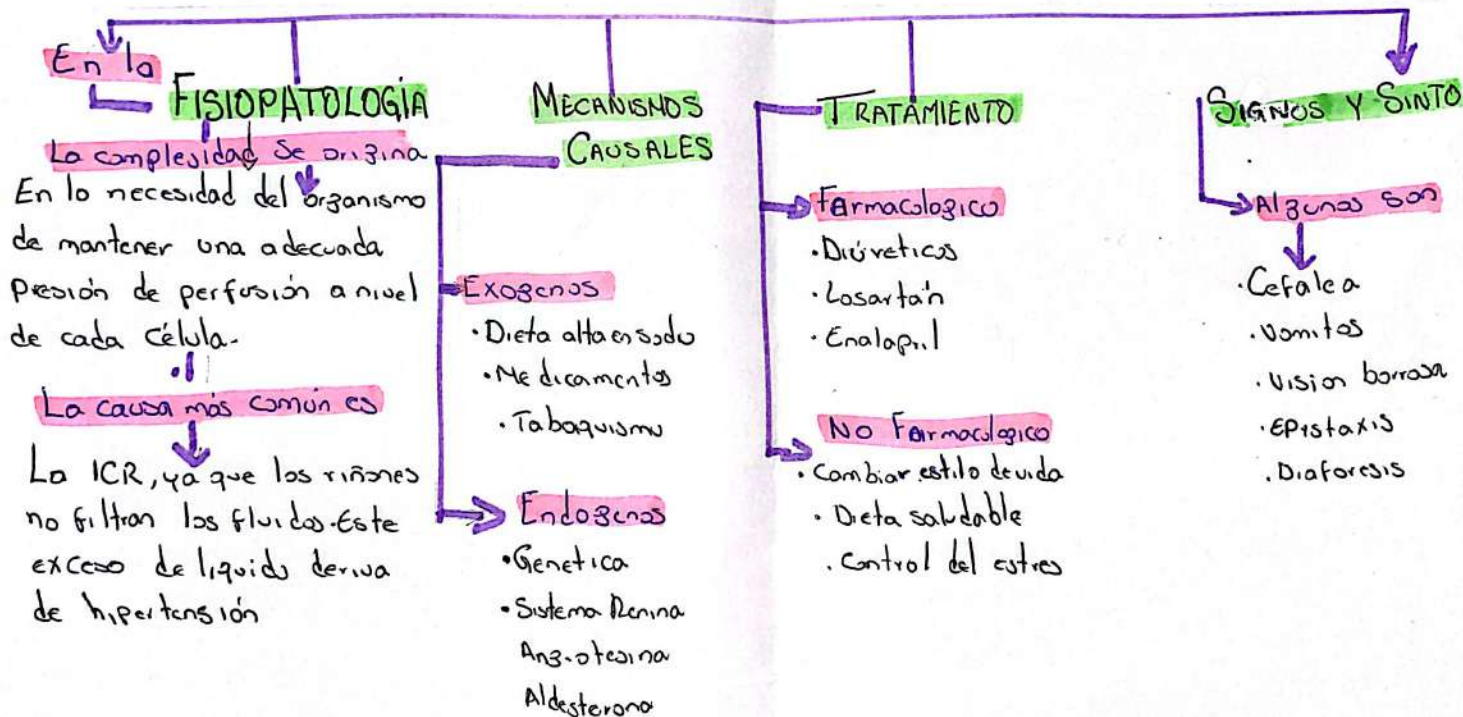 En la
FISIOPATOLOGÍA
La complesidad Se origina
En la necesidad del organismo
de mantener una adecuada
Presión de perfusión a nivel
de cada célula.
La causa más común es
La ICR, ya que los riñones
no filtran los fluidos. Este
exceso de liquido deriva
de hipertensión
MECANISMOS
CAUSALES
Exogenos
• Dieta alta en sodio
• Medicamentos
• Tabaquismo
Endogenos
• Genetica
• Sistema Renina
Angiotesina
Aldesterona
TRATAMIENTO
Farmacologico
• Diúreticos
• Losartán
• Enalapril
No Farmacologico
• Cambiar estilo de vida
• Dieta saludable
• Control del estres
SIGNOS Y SINTO
Algunos son
• Cefalea
• Vomitos
• Vision borrosa
• EPistaxis
• Diaforesis